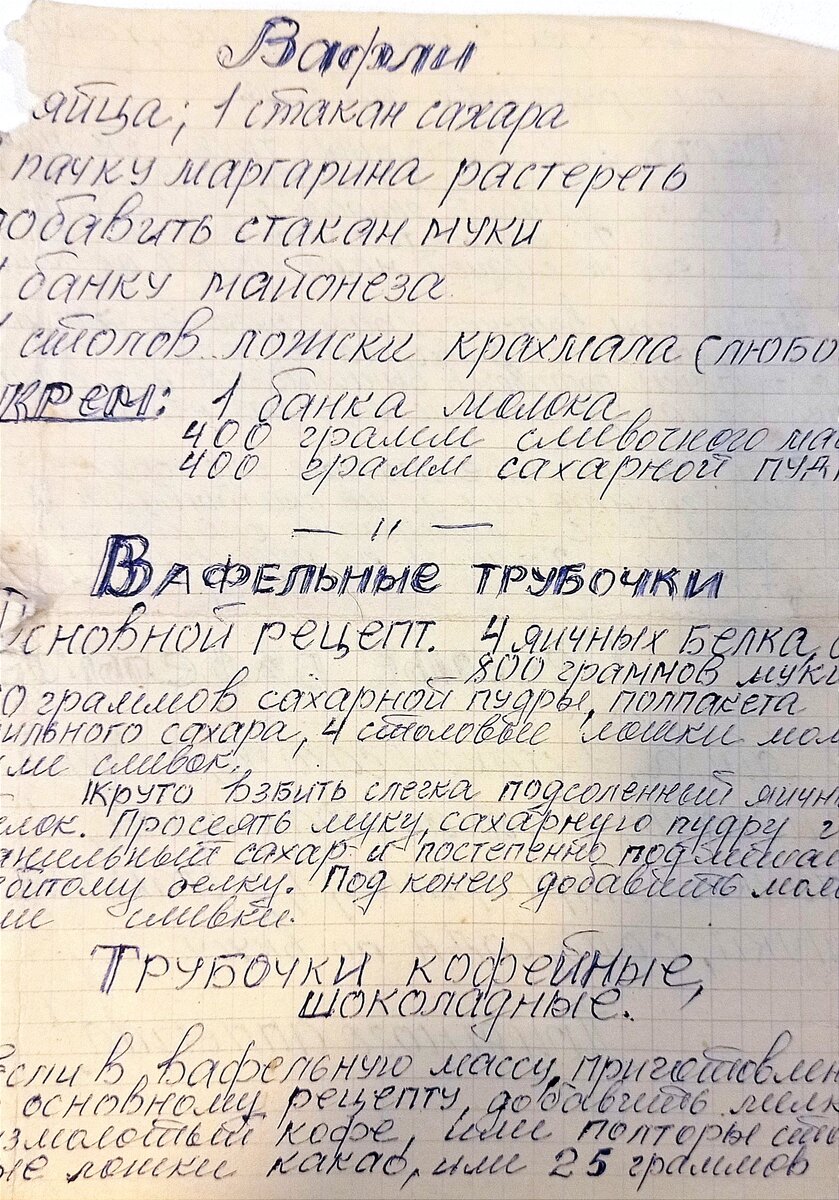 Вафли
яйца; 1 стакан сахара
пачку маргарина растереть
добавить стакан муки
1 банку майонеза
столов ложки крахмала (любо
крем: 1 банка молока
400 грамм сливочного ма
400 грамм сахарной пуд
— 11 —
Вафельные трубочки
Основной рецепт. 4 яичных белка,
800 граммов муки
0 граммов сахарной пудры, полпакета
ильного сахара, 4 столовые лошки мол
ли сливок.
Круто взбить слегка подсоленный яичн
елок. Просеять муку, сахарную пудру
анильный сахар и постепенно подмеша
битому белку. Под конец добавить мол
ли сливки.
Трубочки кофейные,
шоколадные.
если в вафельную массу, приготовлен
основному рецепту, добавить мелк
измолотый кофе, или полторы сто
ые лошки какао, или 25 граммов